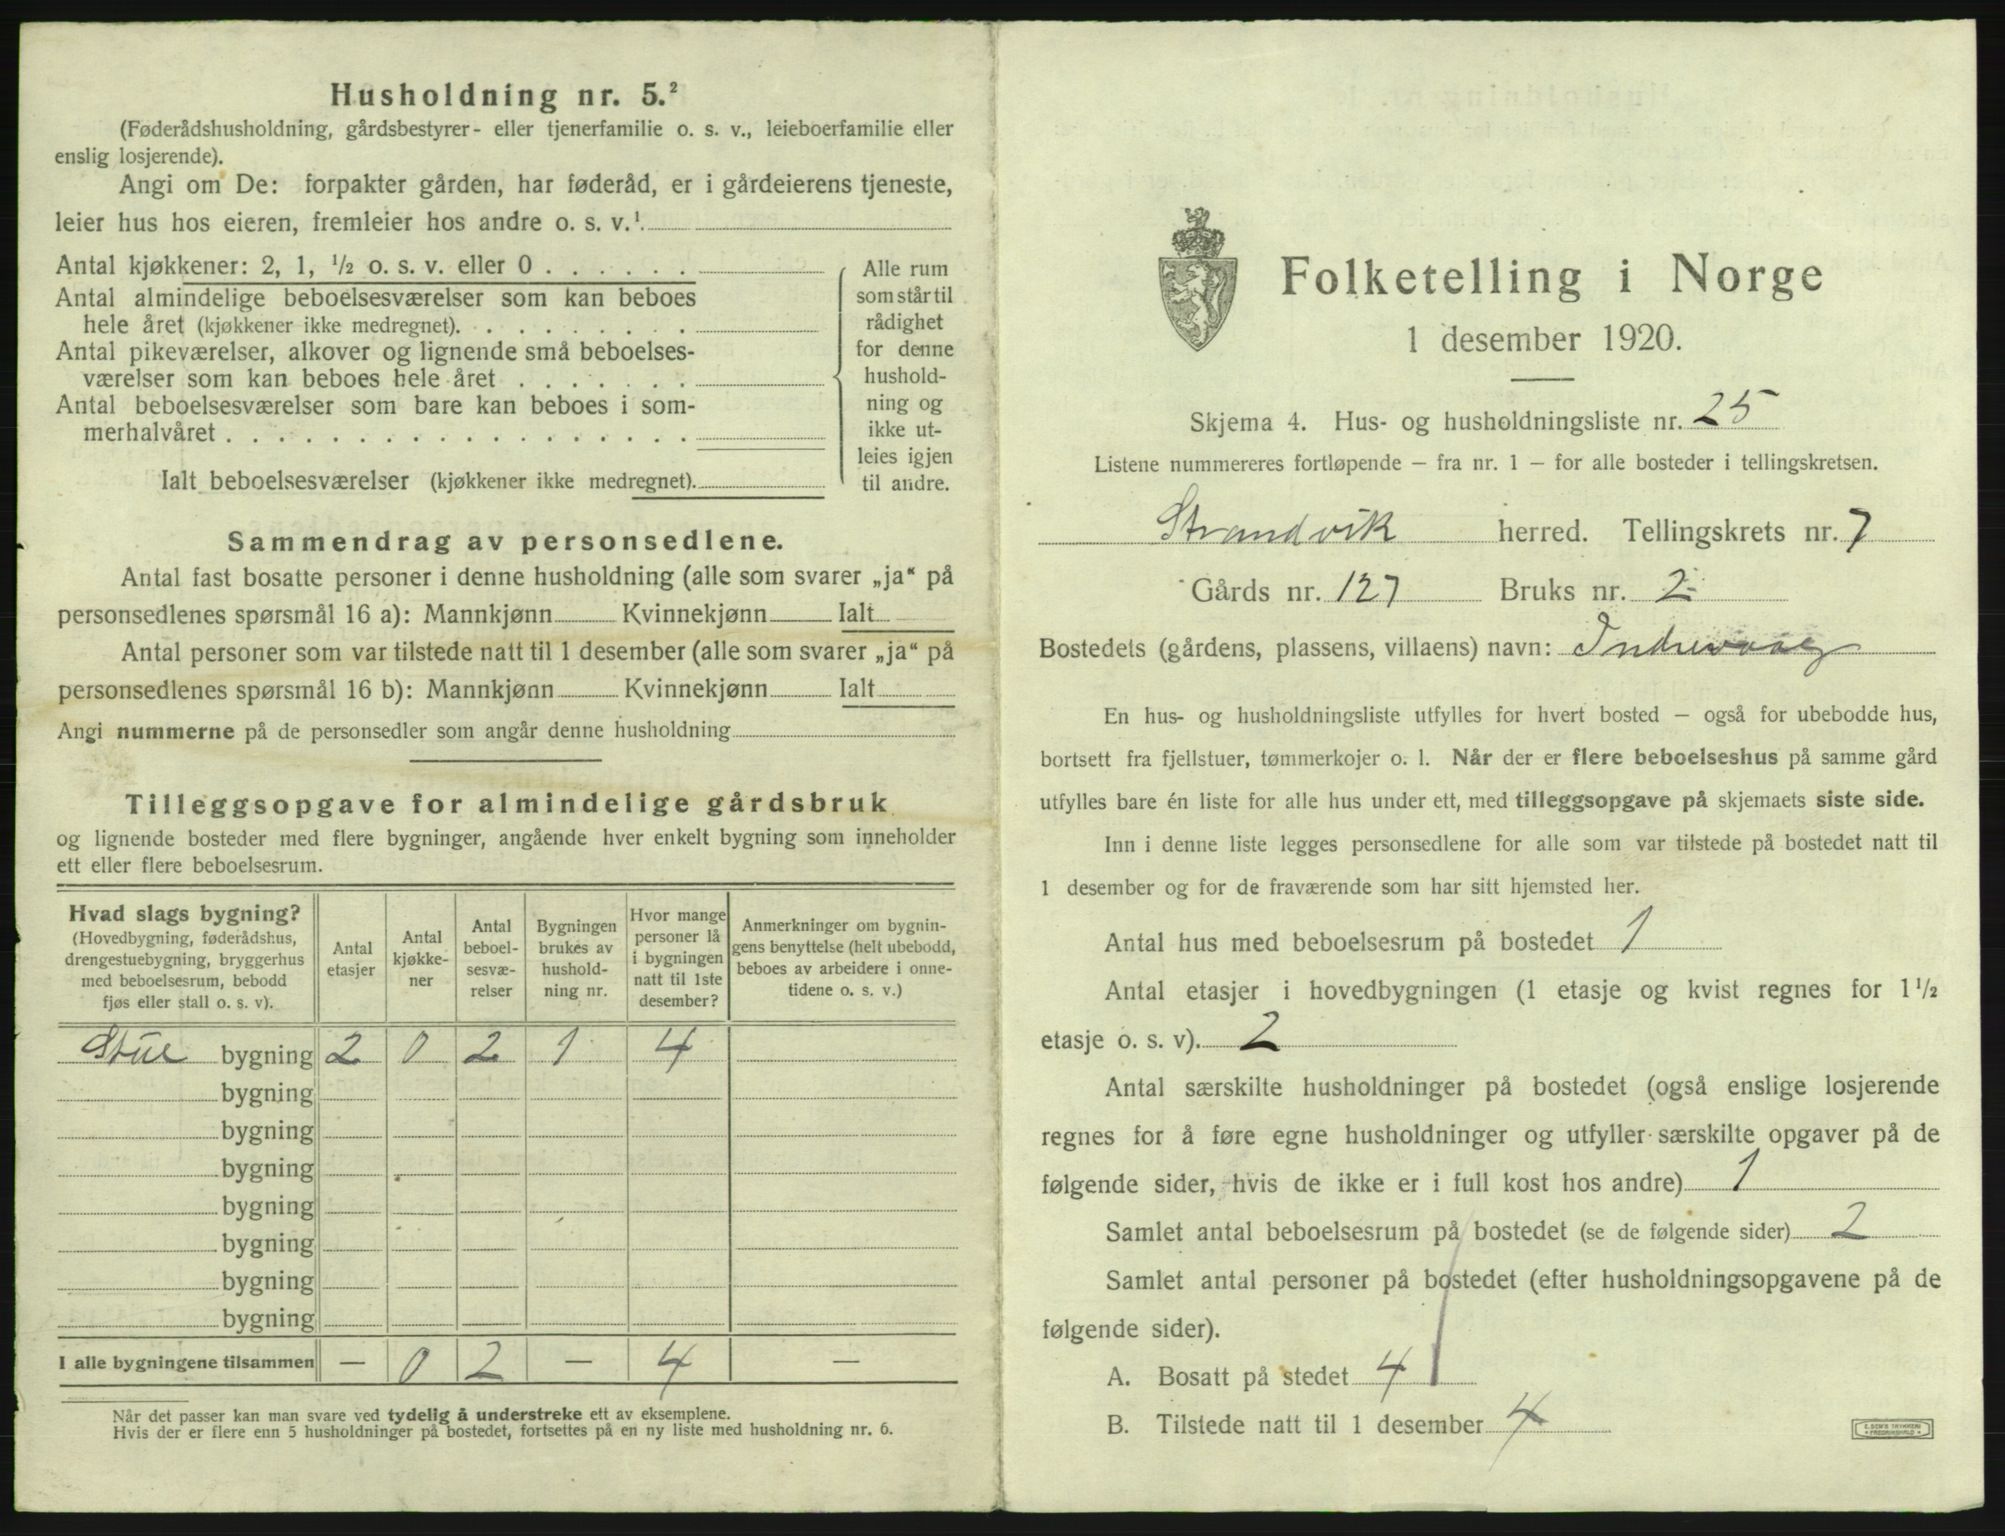 Husholdning nr. 5.²
(Føderådshusholdning, gårdsbestyrer- eller tjenerfamilie o. s. v., leieboerfamilie eller
enslig losjerende).
Angi om De: forpakter gården, har føderåd, er i gårdeierens tjeneste,
leier hus hos eieren, fremleier hos andre o. s. v.¹
Antal kjøkkener: 2, 1, ½ o. s. v. eller 0 . . . . . .
Antal almindelige beboelsesværelser som kan beboes
hele året (kjøkkener ikke medregnet). . . . . . . . .
Antal pikeværelser, alkover og lignende små beboelses-
værelser som kan beboes hele året . . . . . . .
Antal beboelsesværelser som bare kan beboes i som-
merhalvåret . . . . . . . . . . . . . . . . . .
Ialt beboelsesværelser (kjøkkener ikke medregnet).
Alle rum
som står til
rådighet
for denne
hushold-
ning og
ikke ut-
leies igjen
til andre.
Sammendrag av personsedlene.
Antal fast bosatte personer i denne husholdning (alle som svarer „ja“ på
personsedlenes spørsmål 16 a): Mannkjønn Kvinnekjønn Ialt
Antal personer som var tilstede natt til 1 desember (alle som svarer „ja“ på
personsedlenes spørsmål 16 b): Mannkjønn Kvinnekjønn Ialt
Angi nummerne på de personsedler som angår denne husholdning
Tilleggsopgave for almindelige gårdsbruk
og lignende bosteder med flere bygninger, angående hver enkelt bygning som inneholder
ett eller flere beboelsesrum.
Hvad slags bygning?
(Hovedbygning, føderådshus,
drengestuebygning, bryggerhus
med beboelsesrum, bebodd
fjøs eller stall o. s. v).
Antal
etasjer
Antal
kjøkke-
ner
Antal
beboel-
sesvæ-
relser
Bygningen
brukes av
hushold-
ning nr.
Hvor mange
personer lå
i bygningen
natt til 1ste
desember?
Anmerkninger om bygnin-
gens benyttelse (helt ubebodd,
beboes av arbeidere i onne-
tidene o. s. v.)
Stue bygning 2 0 2 1 4
bygning
bygning
bygning
bygning
bygning
bygning
bygning
I alle bygningene tilsammen — 0 2 — 4 —
Når det passer kan man svare ved tydelig å understreke ett av eksemplene.
Hvis der er flere enn 5 husholdninger på bostedet, fortsettes på en ny liste med husholdning nr. 6.
Folketelling i Norge
1 desember 1920.
Skjema 4. Hus- og husholdningsliste nr. 25
Listene nummereres fortløpende — fra nr. 1 — for alle bosteder i tellingskretsen.
Strandvik herred. Tellingskrets nr. 7
Gårds nr. 127 Bruks nr. 2
Bostedets (gårdens, plassens, villaens) navn: Indrevaag
En hus- og husholdningsliste utfylles for hvert bosted — også for ubebodde hus,
bortsett fra fjellstuer, tømmerkojer o. l. Når der er flere beboelseshus på samme gård
utfylles bare én liste for alle hus under ett, med tilleggsopgave på skjemaets siste side.
Inn i denne liste legges personsedlene for alle som var tilstede på bostedet natt til
1 desember og for de fraværende som har sitt hjemsted her.
Antal hus med beboelsesrum på bostedet 1
Antal etasjer i hovedbygningen (1 etasje og kvist regnes for 1½
etasje o. s. v). 2
Antal særskilte husholdninger på bostedet (også enslige losjerende
regnes for å føre egne husholdninger og utfyller særskilte opgaver på de
følgende sider, hvis de ikke er i full kost hos andre) 1
Samlet antal beboelsesrum på bostedet (se de følgende sider) 2
Samlet antal personer på bostedet (efter husholdningsopgavene på de
følgende sider).
A. Bosatt på stedet 4
B. Tilstede natt til 1 desember 4